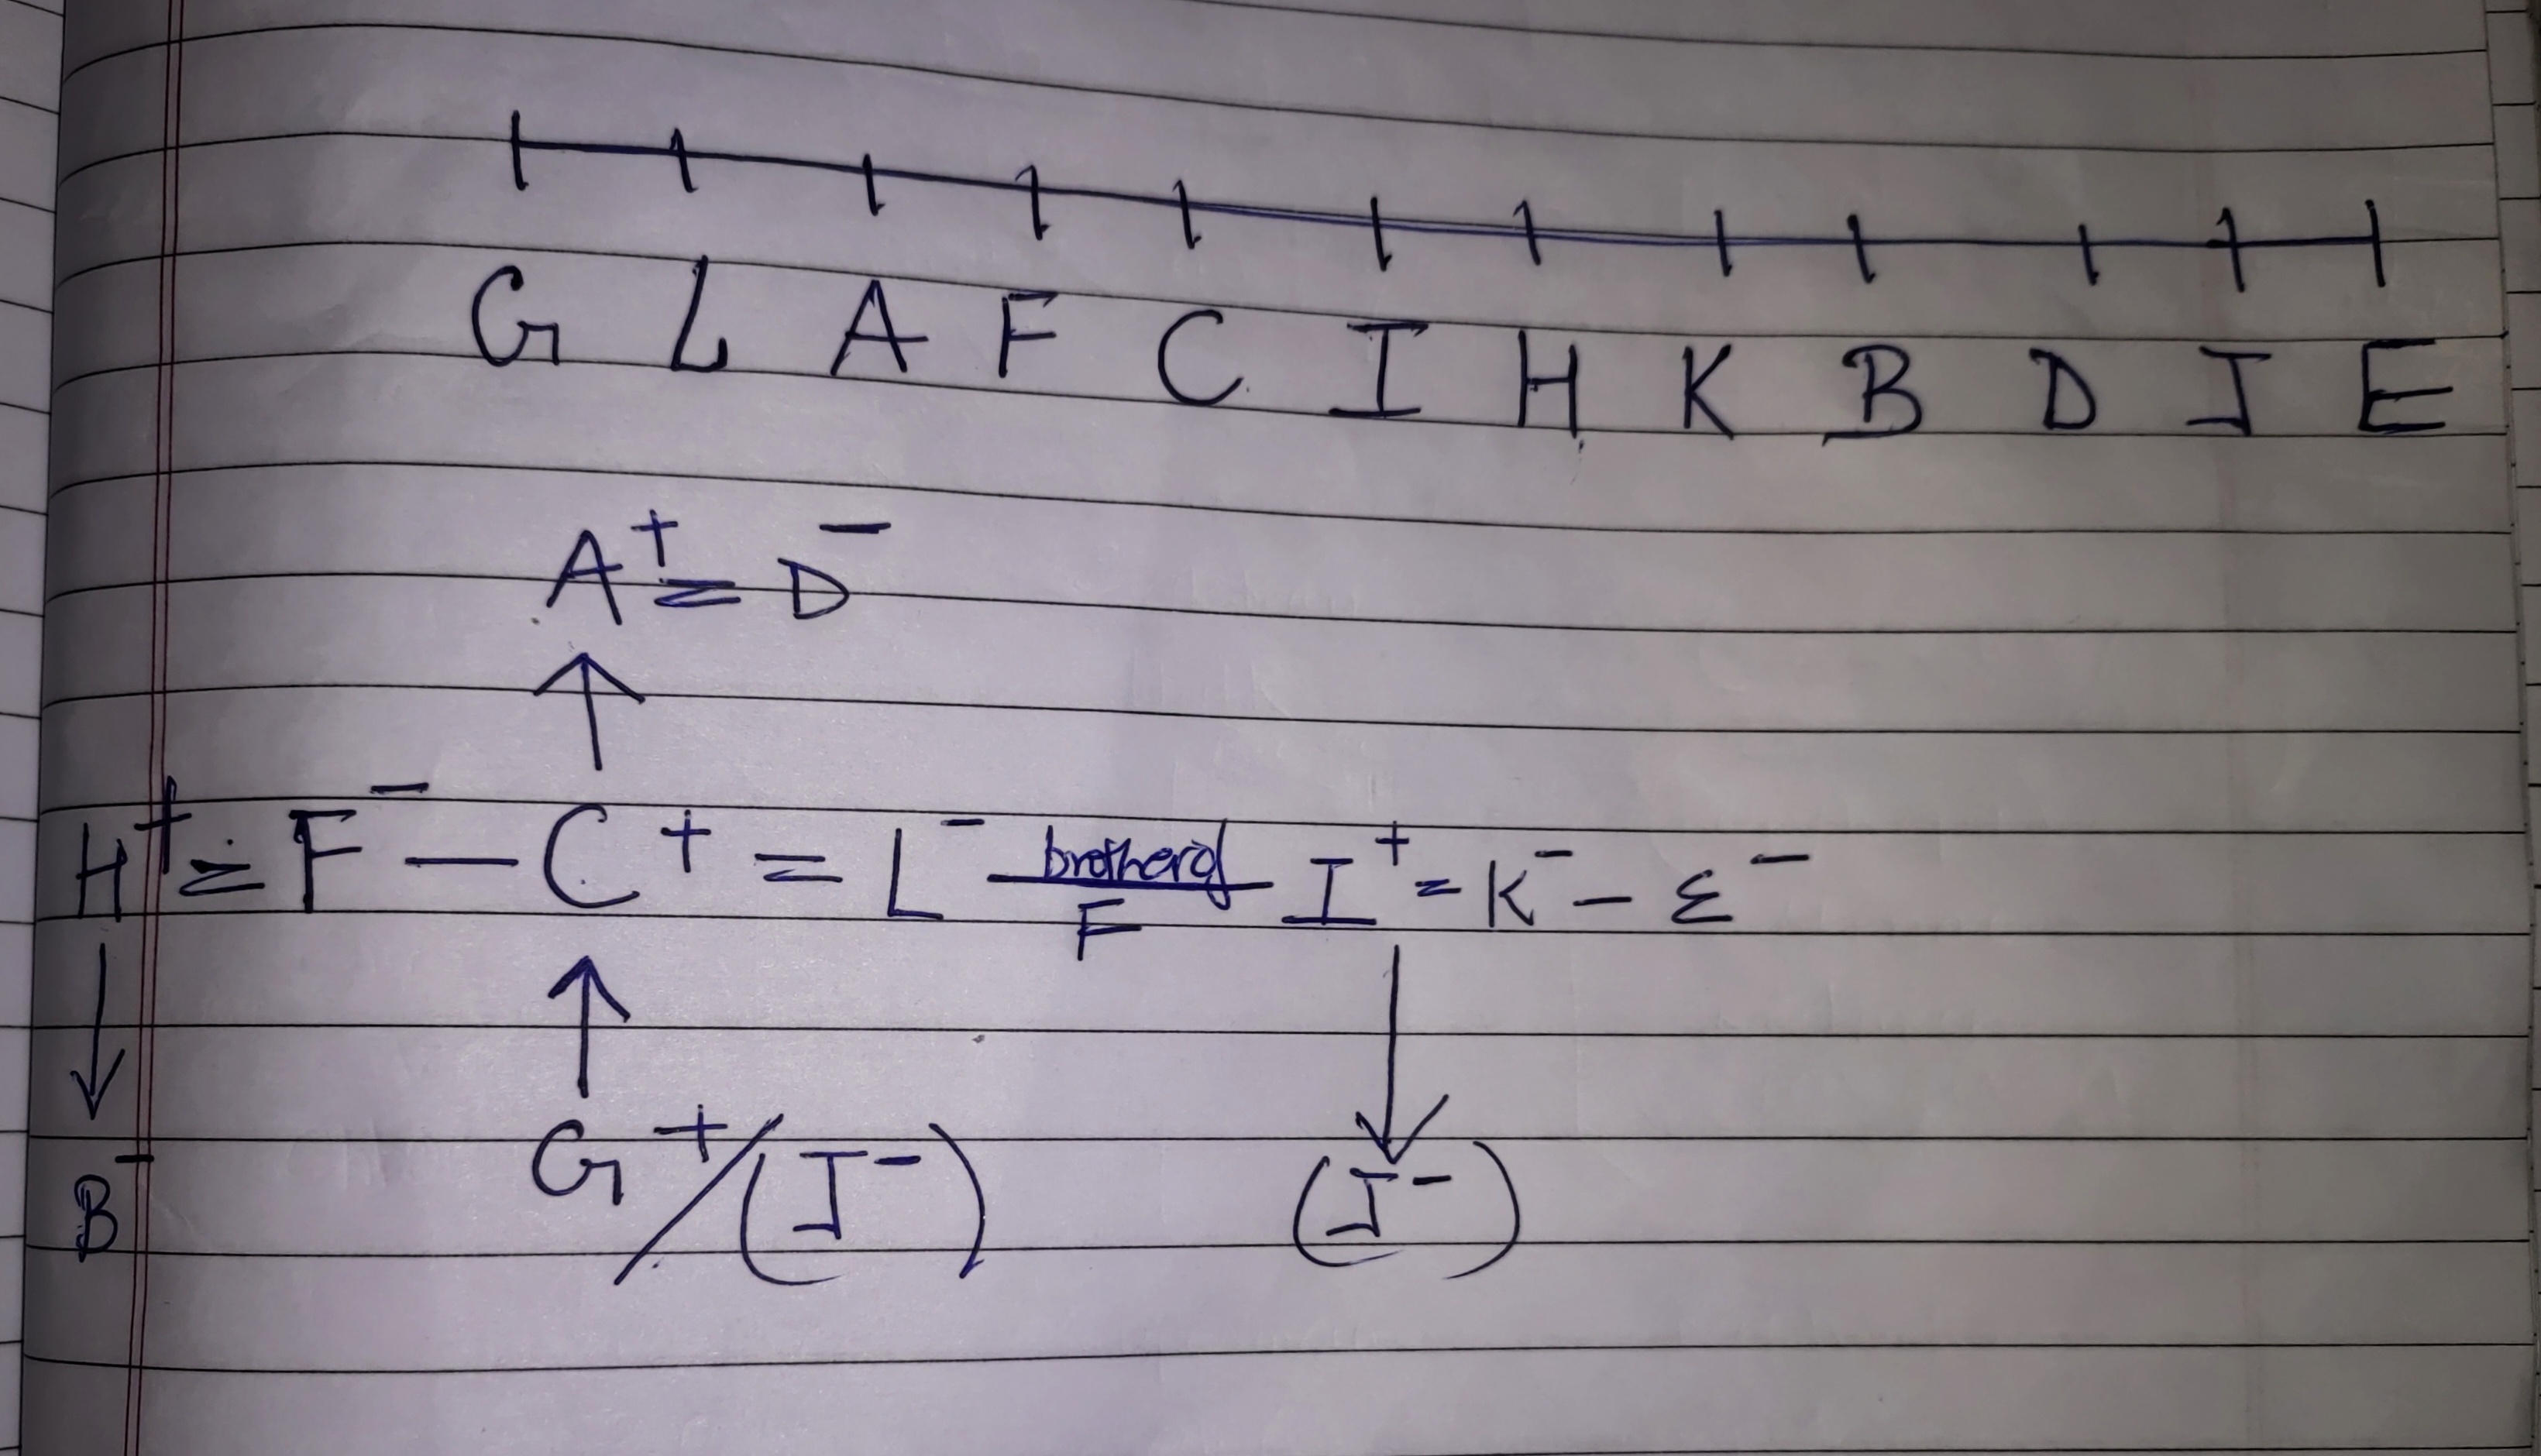 G L A F C I H K B D J E
A⁺ = D⁻
↑
H⁺ = F⁻ — C⁺ = L⁻ — brother of F — I⁺ = K⁻ — E⁻
↓ ↑ ↓
B⁻ G⁺/(J⁻) (J⁻)